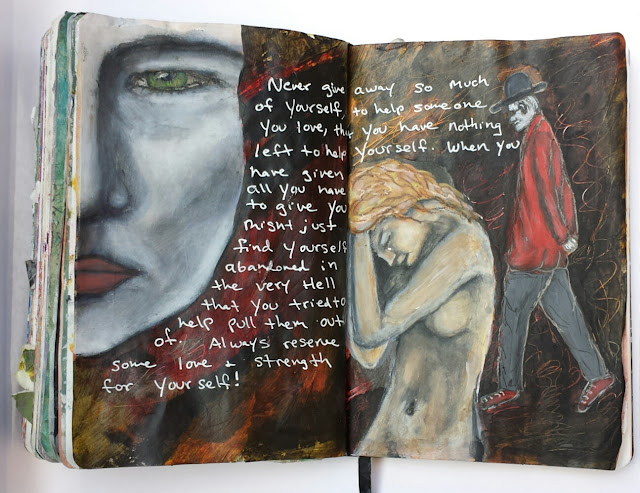 Never give away so much
of yourself to help someone
you love, that you have nothing
left to help yourself. When you
have given
all you have
to give you
might just
find yourself
abandoned in
the very Hell
that you tried to
help pull them out
of. Always reserve
some love + strength
for yourself!